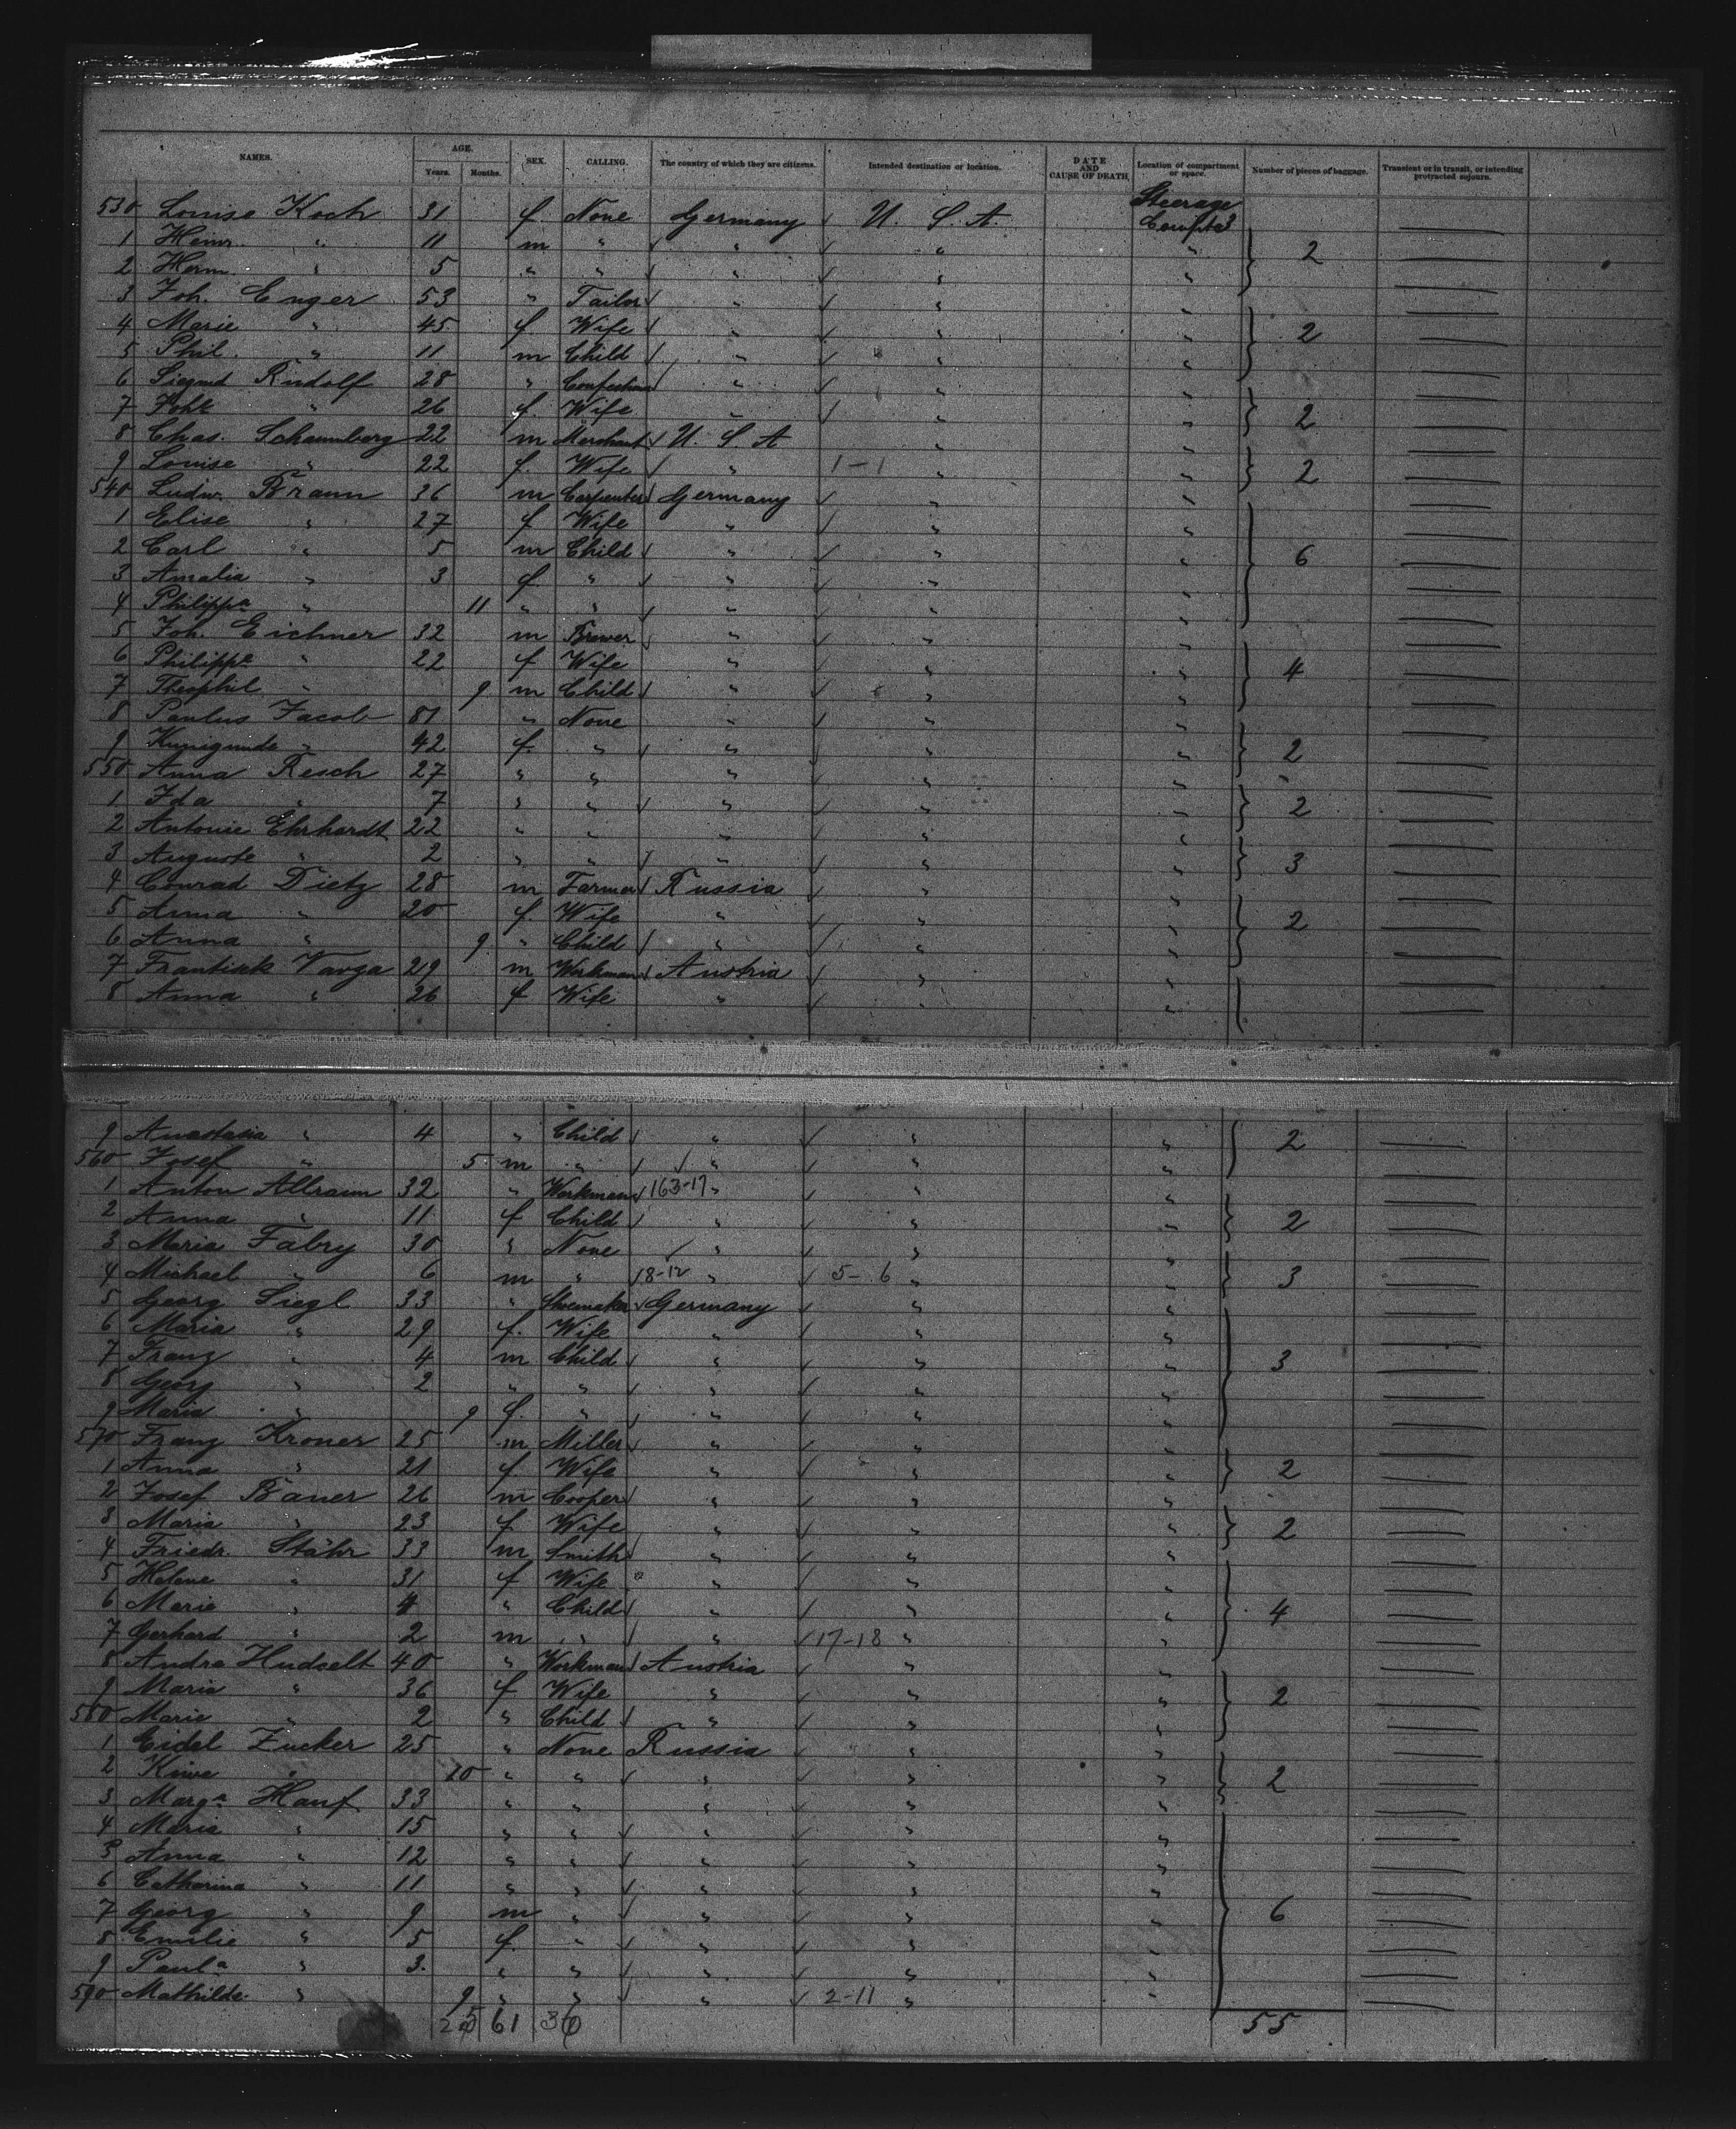 NAMES. AGE. Years. Months. SEX. CALLING. The country of which they are citizens. Intended destination or location. DATE AND CAUSE OF DEATH. Location of compartment or space. Number of pieces of baggage. Transient or in transit, or intending protracted sojourn.
530 Louise Koch 31 f None Germany U. S. A. Steerage Compt 3
1 Heinr. " 11 m " " " " 2
2 Herm. " 5 " " " " "
3 Joh. Enger 53 " Tailor " " "
4 Marie " 45 f Wife " " " 2
5 Phil. " 11 m Child " " "
6 Siegmd Rudolf 28 " " " "
7 " 26 f. Wife " " " 2
8 Chas. Schaumberg 22 m Merchant U. S. A " "
9 Louise " 22 f. Wife " 1-1 " " 2
540 Ludw. Braun 36 m Carpenter Germany " "
1 Elise " 27 f Wife " " "
2 Carl " 5 m Child " " " 6
3 Amalia " 3 f. " " " "
4 Philippa " 11 " " " " "
5 Joh. Eichner 32 m Brewer " " "
6 Philippa " 22 f Wife " " " 4
7 Theophil " 9 m Child " " "
8 Paulus Jacob 81 " None " " "
9 Kunigunde " 42 f. " " " " 2
550 Anna Resch 27 " " " " "
1 Ida " 7 " " " " " 2
2 Antonie Ehrhardt 22 " " " " "
3 Auguste " 2 " " " " " 3
4 Conrad Dietz 28 m Farmer Russia " "
5 Anna " 20 f. Wife " " " 2
6 Anna " 9 " Child " " "
7 Frantisek Varga 29 m Workman Austria " "
8 Anna " 26 f Wife " " "
9 Anastasia " 4 " Child " " " 2
560 Josef " 5 m " " " "
1 Anton Allraum 32 " Workman 163-17 " " "
2 Anna " 11 f Child " " " 2
3 Maria Fabry 30 " None " " "
4 Michael " 6 m " 8-12 " 5-6 " " 3
5 Georg Siegl 33 " Shoemaker Germany " "
6 Maria " 29 f. Wife " " "
7 Franz " 4 m Child " " " 3
8 Georg " 2 " " " " "
9 Maria " 9 f. " " " "
570 Franz Kroner 25 m Miller " " "
1 Anna " 21 f Wife " " " 2
2 Josef Bauer 26 m Cooper " " "
3 Maria " 23 f Wife " " " 2
4 Friedr. Stähr 33 m Smith " " "
5 Helene " 31 f Wife " " "
6 Marie " 4 " Child " " " 4
7 Gerhard " 2 m " " 17-18 " "
8 Andra Hudselt 40 " Workman Austria " "
9 Maria " 36 f Wife " " " 2
580 Marie " 2 " Child " " "
1 Eidel Zucker 25 " None Russia " "
2 Kiwe " 10 " " " " " 2
3 Marga Hanf 33 " " " " "
4 Maria " 15 " " " " "
5 Anna " 12 " " " " "
6 Catharina " 11 " " " " "
7 Georg " 9 m " " " " 6
8 Emilie " 5 f. " " " "
9 Paula " 3. " " " " "
590 Mathilde " 9 " " " 2-11 " "
61 55